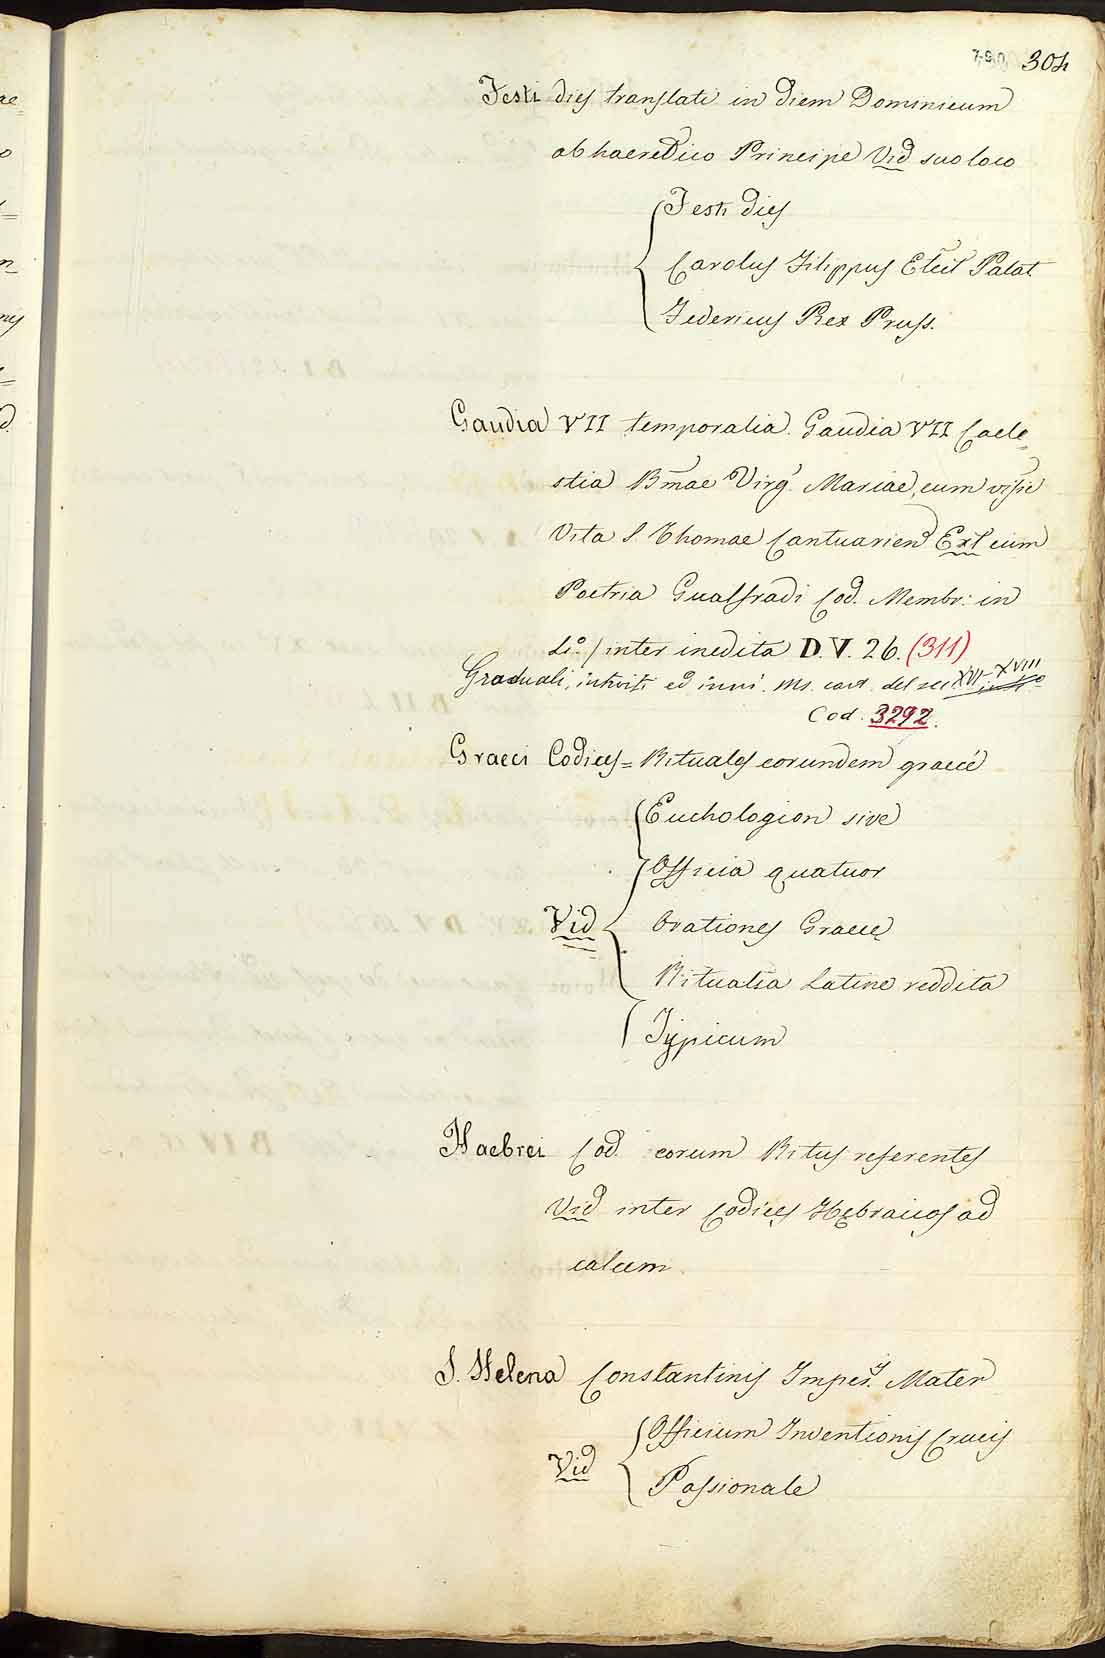 304
Festi dies translati in diem Dominicum
ab haeredico Principe Vid suo loco
Festi dies
Carolus Filippus Elect Palat
Federicus Rex Pruss.
Gaudia VII temporalia. Gaudia VII Caele=
stia Bmae Virg. Mariae, cum
Vita S. Thomae Cantuarien Ext cum
Poetria Gualfradi Cod. Membr: in
inter inedita D. V. 26. (311)
Graduali, introiti ed inni. Ms. cart. del sec XVI-XVIII
Cod. 3292.
Graeci Codices = Rituales eorundem graecè
Euchologion sive
Officia quatuor
Vid
Orationes Graece
Ritualia Latine reddita
Typicum
Haebrei Cod. eorum Ritus referentes
Vid inter Codices Hebraicos ad
calcem.
S. Helena Constantinis Imper. Mater
Vid
Officium Inventionis Crucis
Passionale